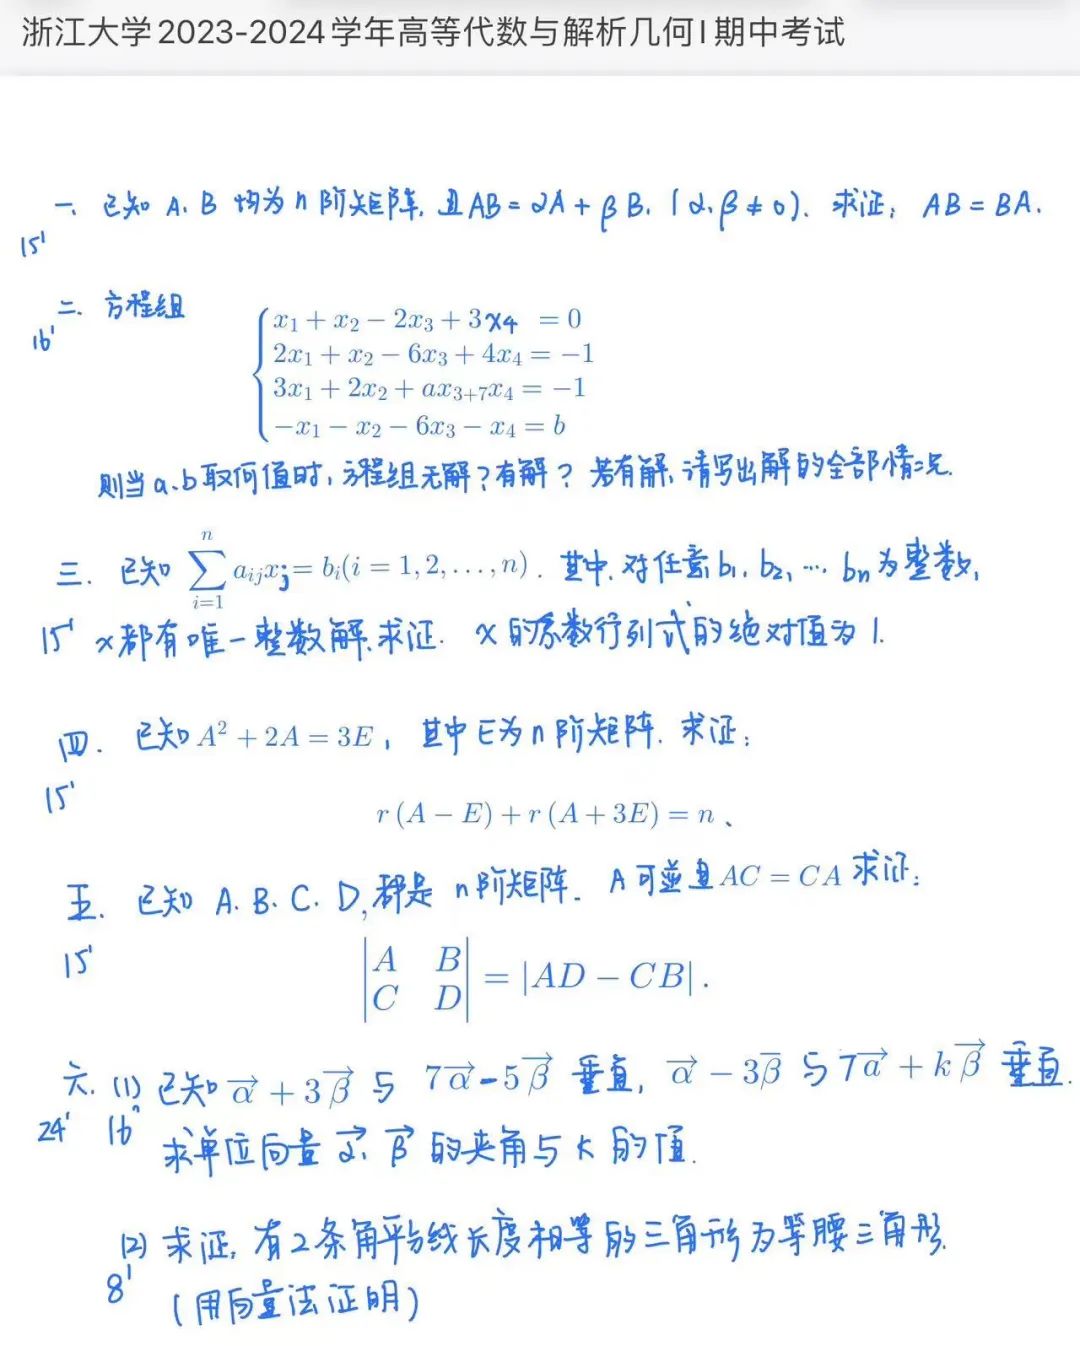 浙江大学2023-2024学年高等代数与解析几何I期中考试
一、已知 A、B 均为 n 阶矩阵,且AB=αA+βB.(α、β≠0). 求证: AB=BA.
15'
二、方程组
16'
x₁ + x₂ − 2x₃ + 3x₄ = 0
2x₁ + x₂ − 6x₃ + 4x₄ = −1
3x₁ + 2x₂ + ax₃₊₇x₄ = −1
−x₁ − x₂ − 6x₃ − x₄ = b
则当a、b取何值时,方程组无解?有解?若有解,请写出解的全部情况.
三. 已知 ∑_{i=1}^{n} a_{ij}x_j = b_i(i = 1, 2, . . . , n). 其中,对任意b₁、b₂、… bₙ为整数,
15' x都有唯一整数解.求证. x的系数行列式的绝对值为1.
四. 已知 A² + 2A = 3E, 其中E为n阶矩阵. 求证:
15'
r (A − E) + r (A + 3E) = n、
五. 已知 A. B. C. D,都是 n阶矩阵. A可逆且AC = CA 求证:
15'
|A B|
|C D| = |AD − CB| .
六. (1) 已知 α⃗ + 3β⃗ 与 7α⃗ − 5β⃗ 垂直, α⃗ − 3β⃗ 与 7a⃗ + kβ⃗ 垂直.
24' 16' 求单位向量 α⃗、β⃗ 的夹角与 k 的值.
(2) 求证, 有2条角平分线长度相等的三角形为等腰三角形.
8' (用向量法证明)